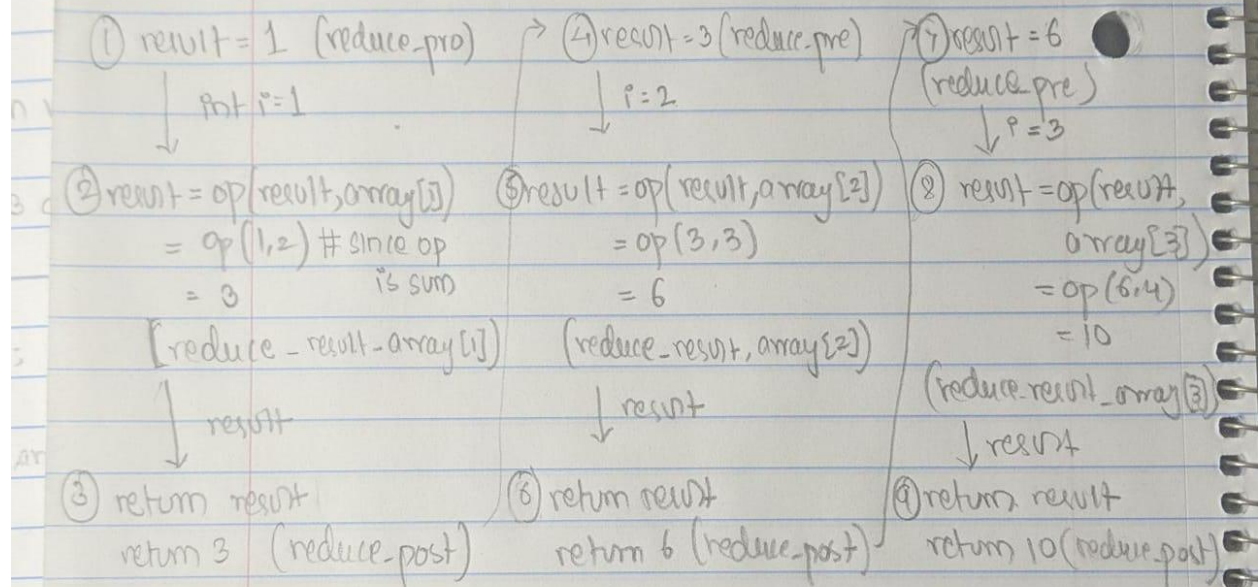 ① result = 1 (reduce_pro)
int i=1
② result = op(result, array[1])
= op(1,2) # since op
is sum
= 3
[reduce_result_array[1])
result
③ return result
return 3 (reduce_post)
④ result = 3 (reduce_pre)
i=2
⑤ result = op(result, array[2])
= op(3,3)
= 6
(reduce_result, array[2])
result
⑥ return result
return 6 (reduce_post)
⑦ result = 6
(reduce_pre)
i=3
⑧ result = op(result,
array[3])
= op(6,4)
= 10
(reduce_result_array[3])
result
⑨ return result
return 10 (reduce_post)